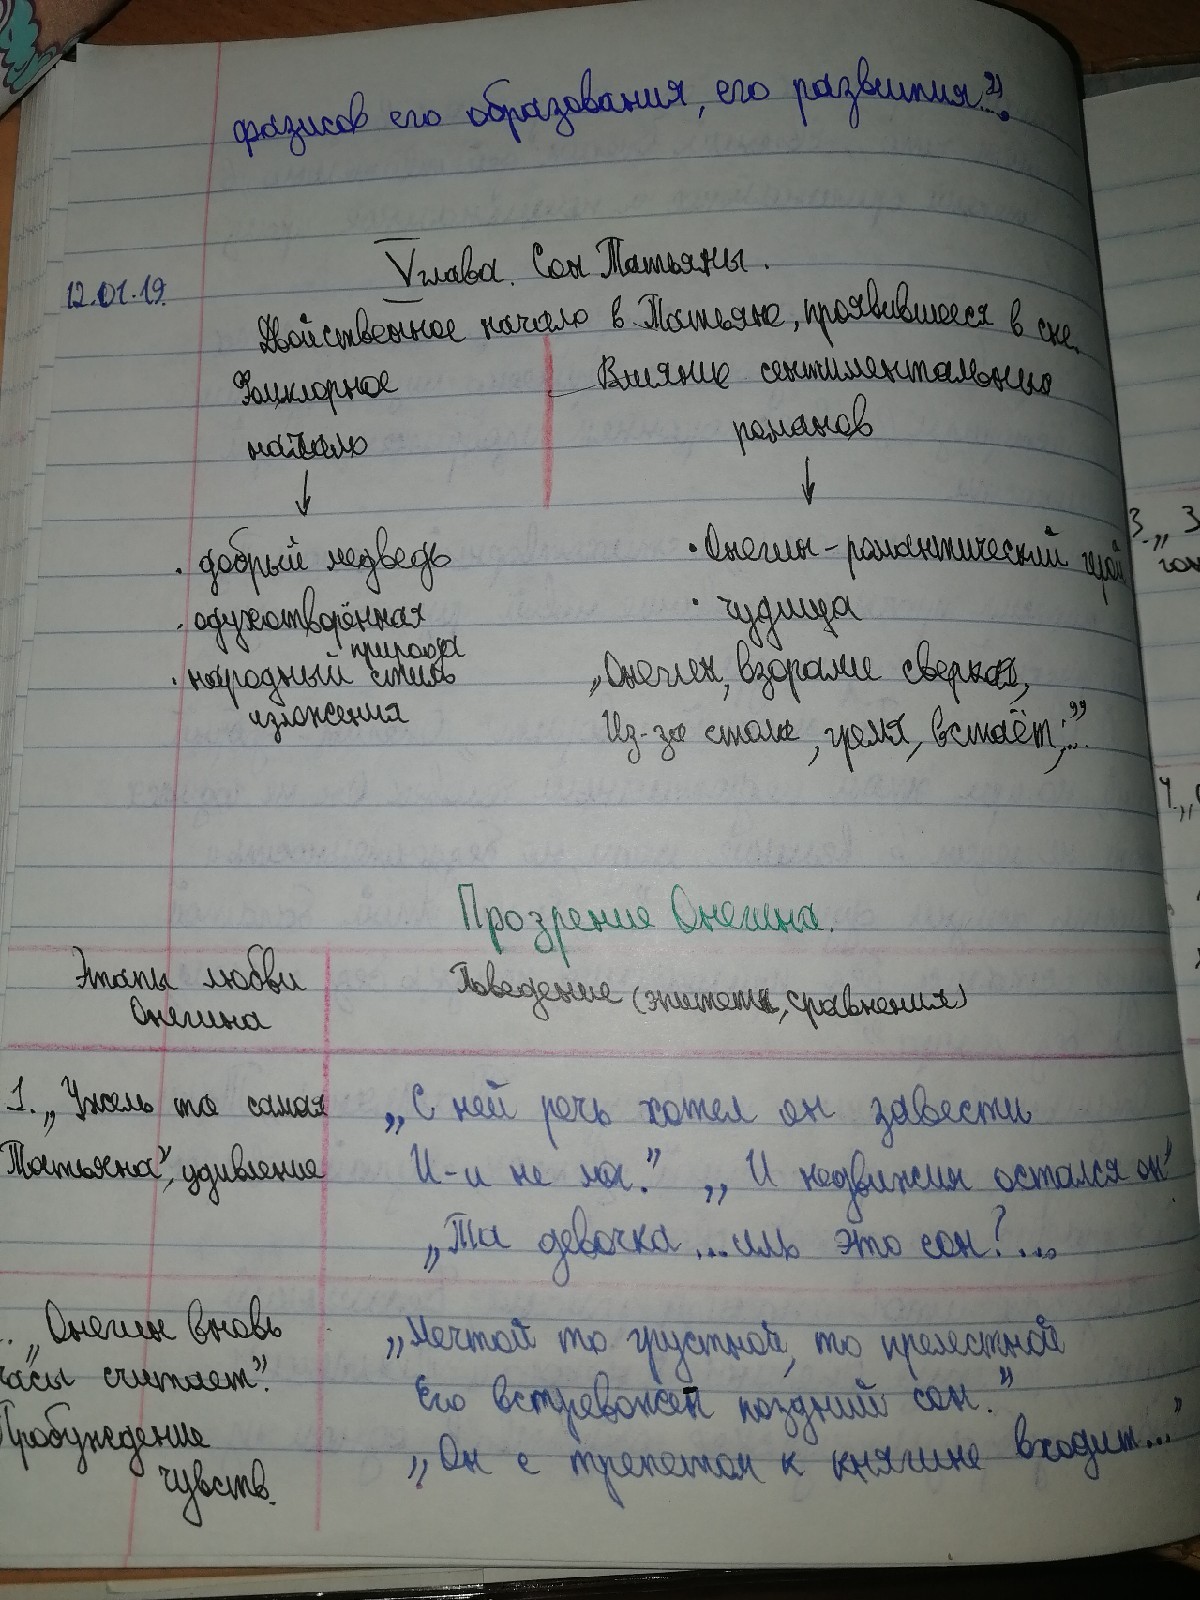 фазисов его образования, его развития..."
12.01.19
V глава. Сон Татьяны.
Двойственное начало в Татьяне, проявившееся в сне.
Фольклорное
начало
Влияние сентиментальных
романов
↓
↓
· добрый медведь
· одухотворённая
природа
· народный стиль
изложения
· Онегин - романтический герой
· чудища
„Онегин, взорами сверкая,
Из-за стола, гремя, встаёт;..."
Прозрение Онегина.
Этапы любви
Онегина
Поведение (эпитеты, сравнения)
1. „Ужель та самая
Татьяна", удивление
„С ней речь хотел он завести
И-и не мог." „И недвижим остался он"
„Та девочка... иль это сон?...
. „Онегин вновь
часы считает".
Пробуждение
чувств.
„Мечтой то грустной, то прелестной
Его встревожен поздний сон."
„Он с трепетом к княгине входит..."
3. „З
4. „